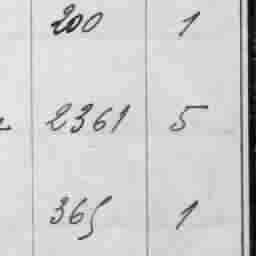 200 1
2361 5
365 1